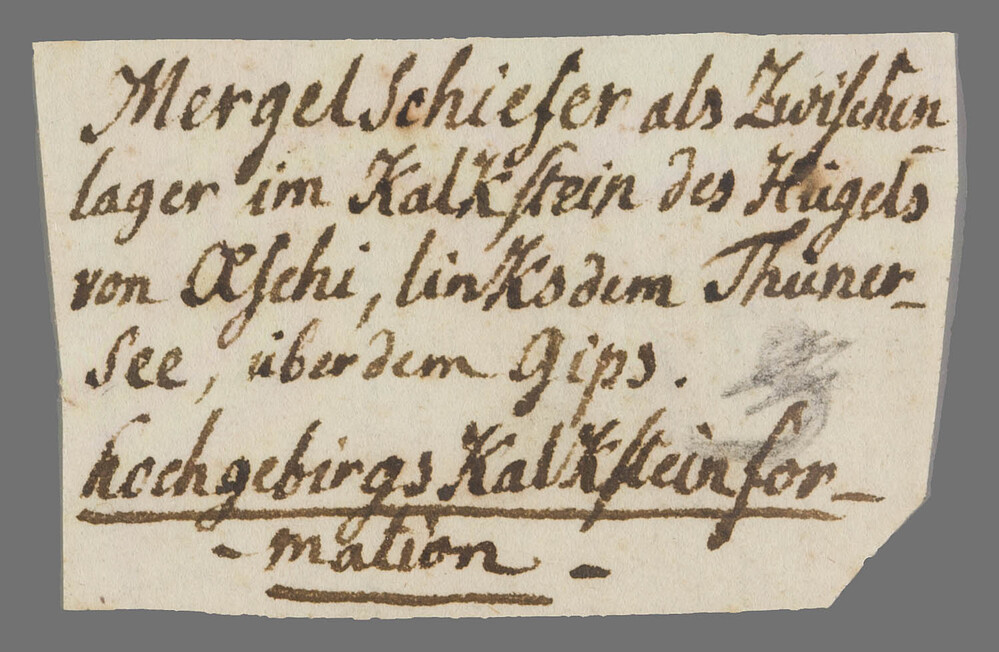 Mergel Schiefer als Zwischen
lager im KalKstein des Hügels
von Œschi, linKs dem Thuner-
See, über dem Gips.
hochgebirgs KalKsteinfor-
- mation -